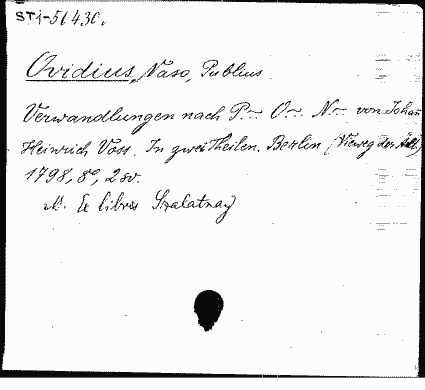 STi-56430.
Ovidius, Naso, Publius
Verwandlungen nach P~ O~ N~ von Johan
Heinrich Voss. In zwei Theilen. Berlin (Vieweg der Ält.)
1798, 8°, 2 sv.
M. Ex libris Szalatnay